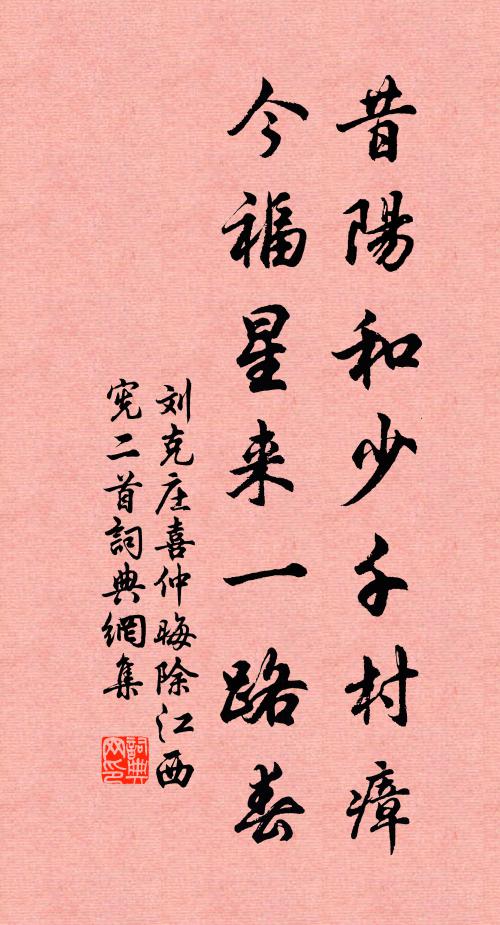 昔陽和少千村瘴
今福星来一路春
刘克庄喜仲晦除江西
宪二首詞典網集
詞典
网印